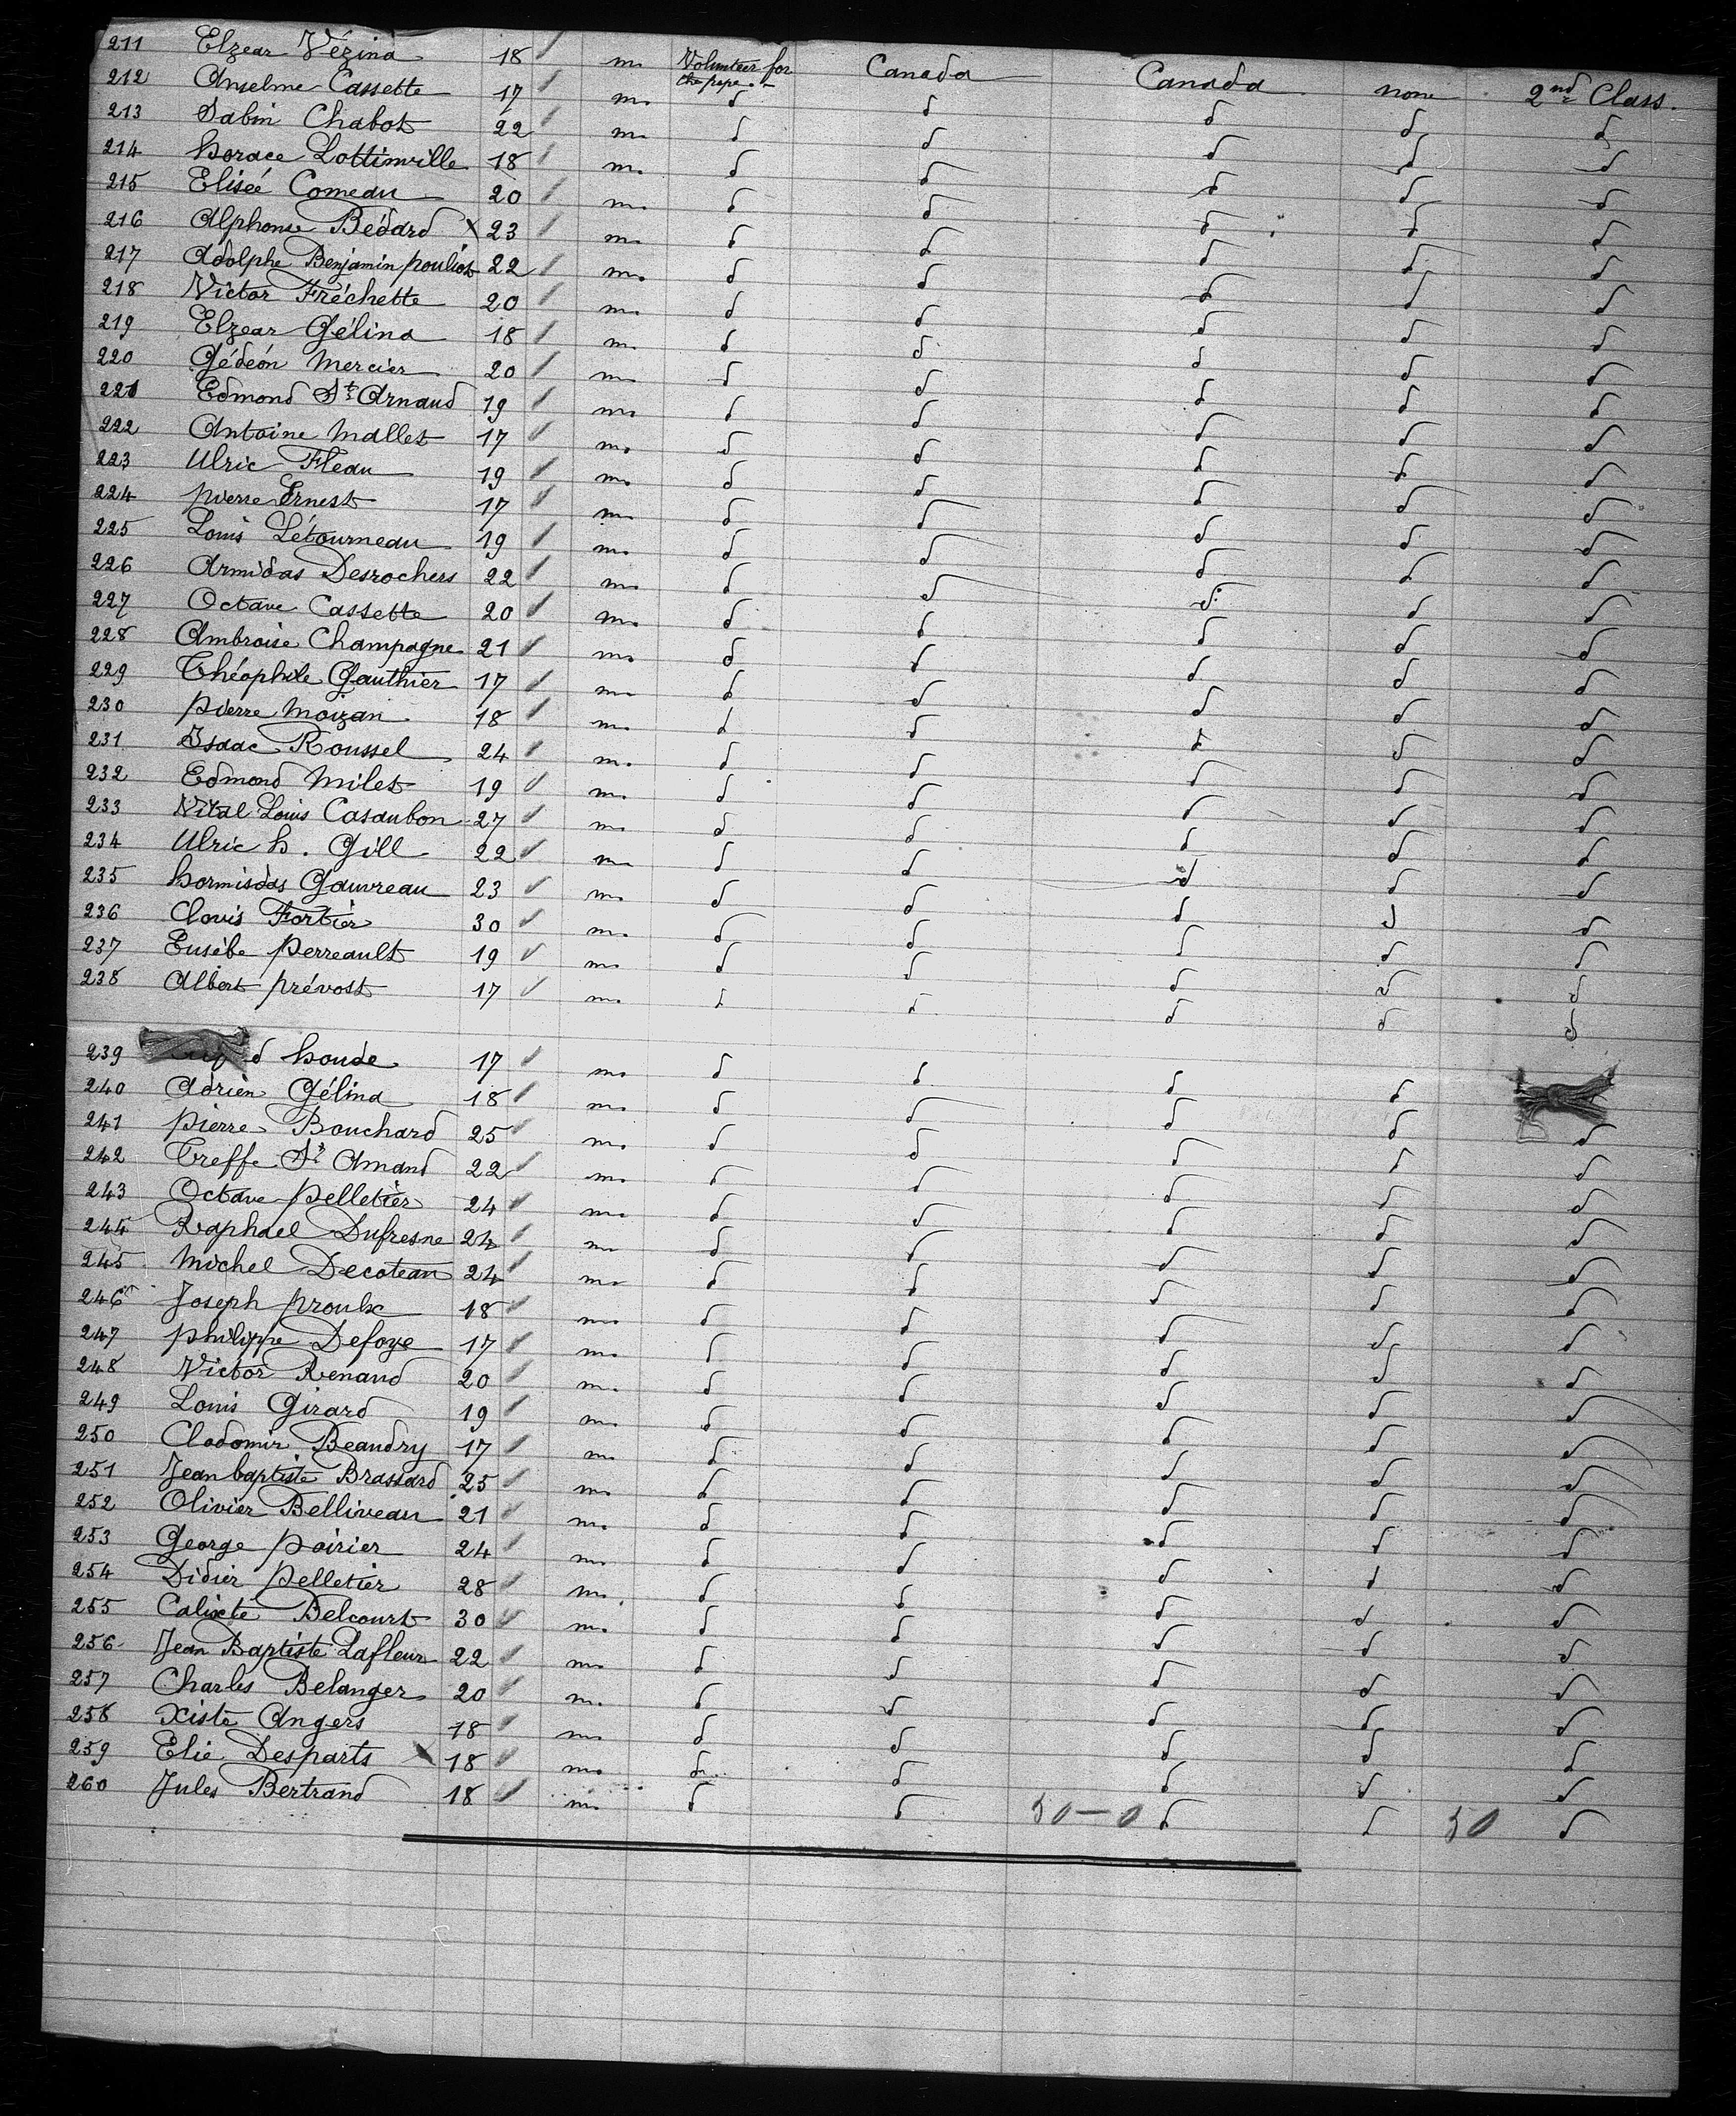 211 Elzear Vézina 18 m. Volunteer for the pope. Canada Canada none 2nd Class.
212 Anselme Cassette 17 m. d d d d d
213 Sabin Chabot 22 m. d d d d d
214 horace Lottinville 18 m. d d d d d
215 Eliseé Comeau 20 m. d d d d d
216 Alphonse Bédard X 23 m. d d d d d
217 Adolphe Benjamin pouliot 22 m. d d d d d
218 Victor Fréchette 20 m. d d d d d
219 Elzear Gélina 18 m. d d d d d
220 Gédéon Mercier 20 m. d d d d d
221 Edmond St Arnaud 19 m. d d d d d
222 Antoine Mallet 17 m. d d d d d
223 Ulric Fleau 19 m. d d d d d
224 pierre Ernest 17 m. d d d d d
225 Louis Létourneau 19 m. d d d d d
226 Armidas Desrochers 22 m. d d d d d
227 Octave Cassette 20 m. d d d d d
228 Ambroise Champagne 21 m. d d d d d
229 Théophile Gauthier 17 m. d d d d d
230 pierre Moizan 18 m. d d d d d
231 Isaac Roussel 24 m. d d d d d
232 Edmond Milet 19 m. d d d d d
233 Vital Louis Casaubon 27 m. d d d d d
234 Ulric h. Gill 22 m. d d d d d
235 hormisdas Gauvreau 23 m. d d d d d
236 Clovis Fortier 30 m. d d d d d
237 Eusébe perreault 19 m. d d d d d
238 Albert prévost 17 m. d d d d d
239 houde 17 m. d d d d
240 Adrien Gélina 18 m. d d d d d
241 pierre Bouchard 25 m. d d d d d
242 Treffe St Amand 22 m. d d d d d
243 Octave pelletier 24 m. d d d d d
244 Raphael Dufresne 24 m. d d d d d
245 Michel Decoteau 24 m. d d d d d
246 Joseph proulx 18 m. d d d d d
247 philippe Defoye 17 m. d d d d d
248 Victor Renaud 20 m. d d d d d
249 Louis Girard 19 m. d d d d d
250 Clodomir Beaudry 17 m. d d d d d
251 Jean baptiste Brassard 25 m. d d d d d
252 Olivier Belliveau 21 m. d d d d d
253 George poirier 24 m. d d d d d
254 Didier pelletier 28 m. d d d d d
255 Calixte Belcourt 30 m. d d d d d
256 Jean Baptiste Lafleur 22 m. d d d d d
257 Charles Belanger 20 m. d d d d d
258 Xiste Angers 18 m. d d d d d
259 Elie Desparts X 18 m. d d d d d
260 Jules Bertrand 18 m. d d 50—0 d d 50 d